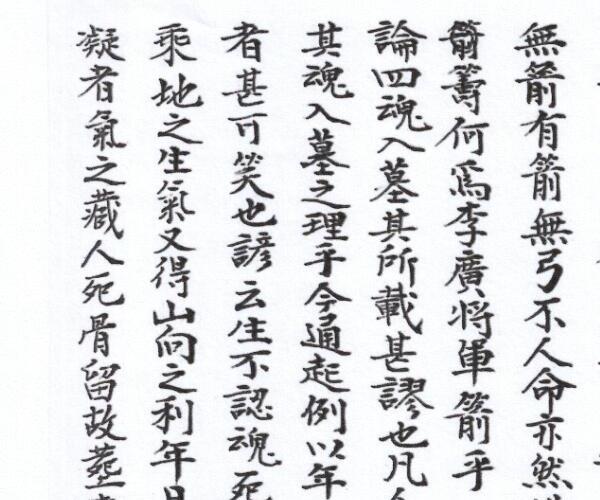 無箭有箭無弓不人命亦然
箭籌何為李廣將軍箭乎
論四魂入墓其所載甚謬也凡
其魂入墓之理乎今通起例以年
者甚可笑也諺云生不認魂死
乘地之生氣又得山向之利年
凝者氣之藏人死骨留故塟